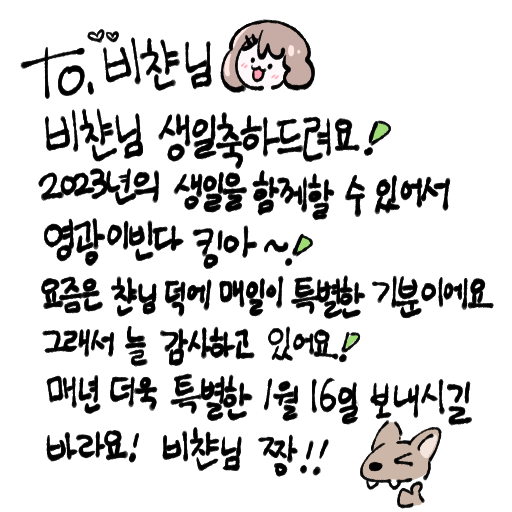 To. 비챤님
비챤님 생일축하드려요!
2023년의 생일을 함께할 수 있어서
영광이빈다 킹아~!
요즘은 챤님 덕에 매일이 특별한 기분이에요
그래서 늘 감사하고 있어요!
매년 더욱 특별한 1월 16일 보내시길
바라요! 비챤님 짱!!